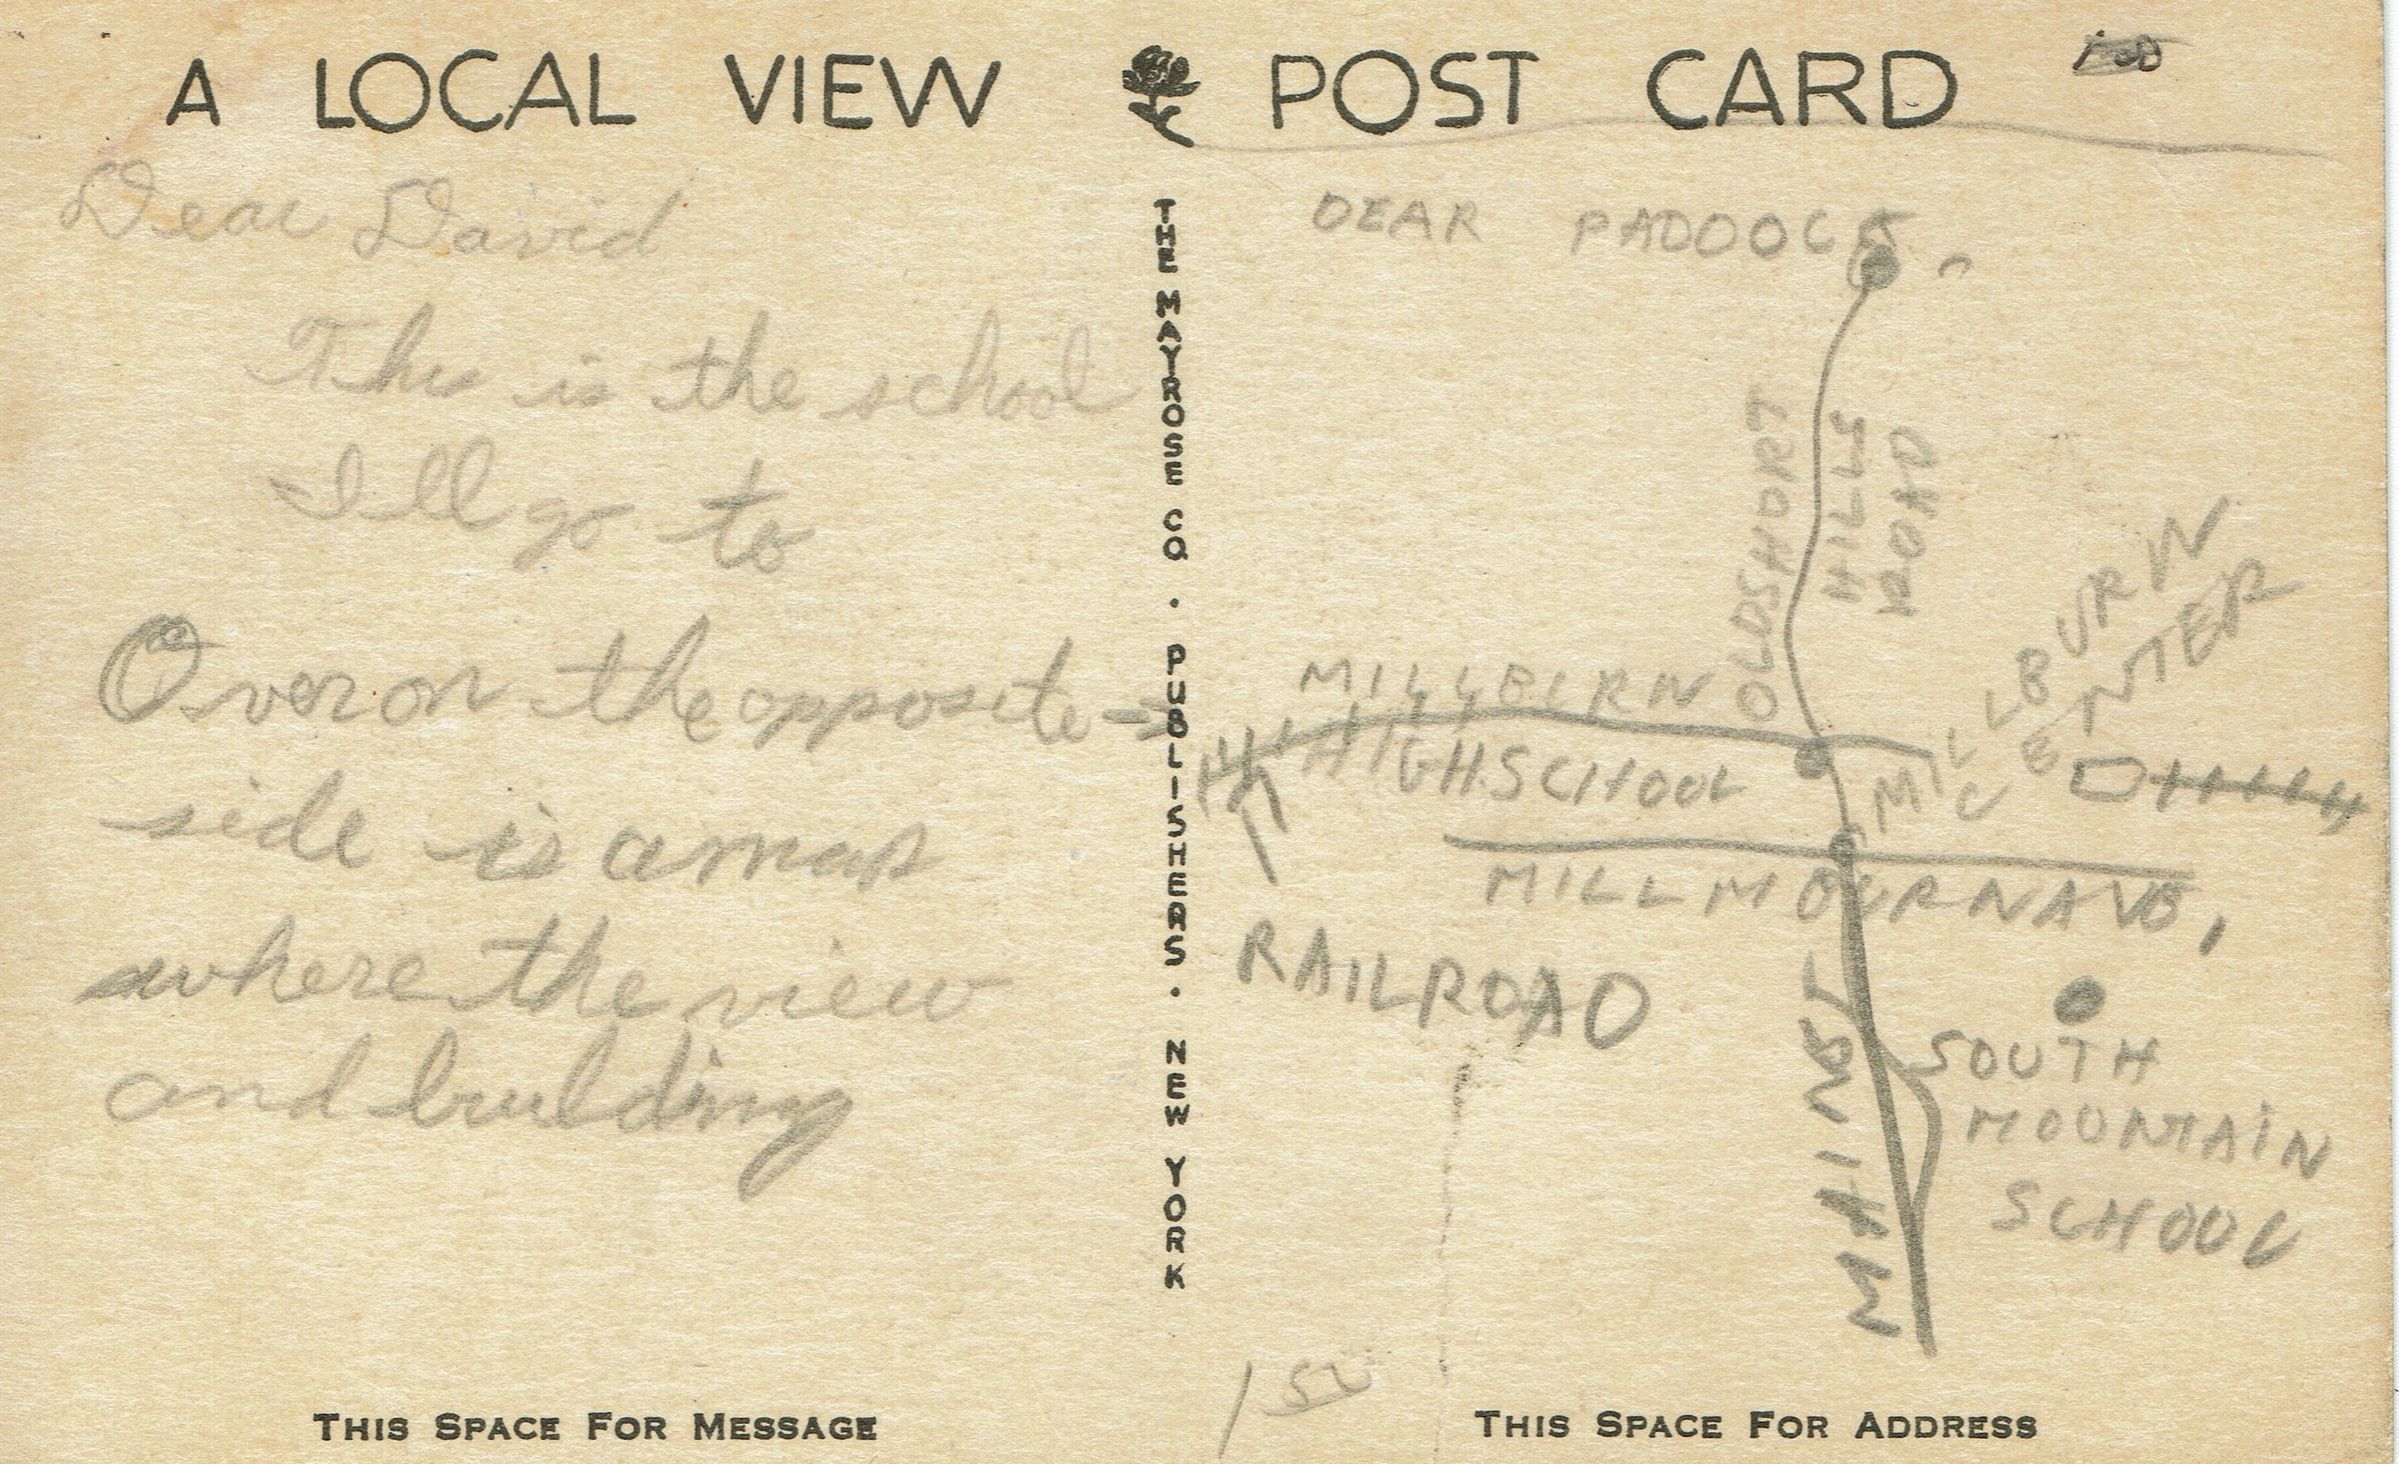 A LOCAL VIEW POST CARD
Dear David
This is the school
I ll go to
Over on the opposite →
side is a map
where the view
and building
THIS SPACE FOR MESSAGE
THE MAYROSE CO. • PUBLISHERS • NEW YORK
DEAR PADDOCK
OLDSHORT
HILLS
ROAD
MILLBURN
HIGHSCHOOL
MILLBURN
CENTER
MILLMOURNAVE,
RAILROAD
MAINST
SOUTH
MOUNTAIN
SCHOOL
THIS SPACE FOR ADDRESS